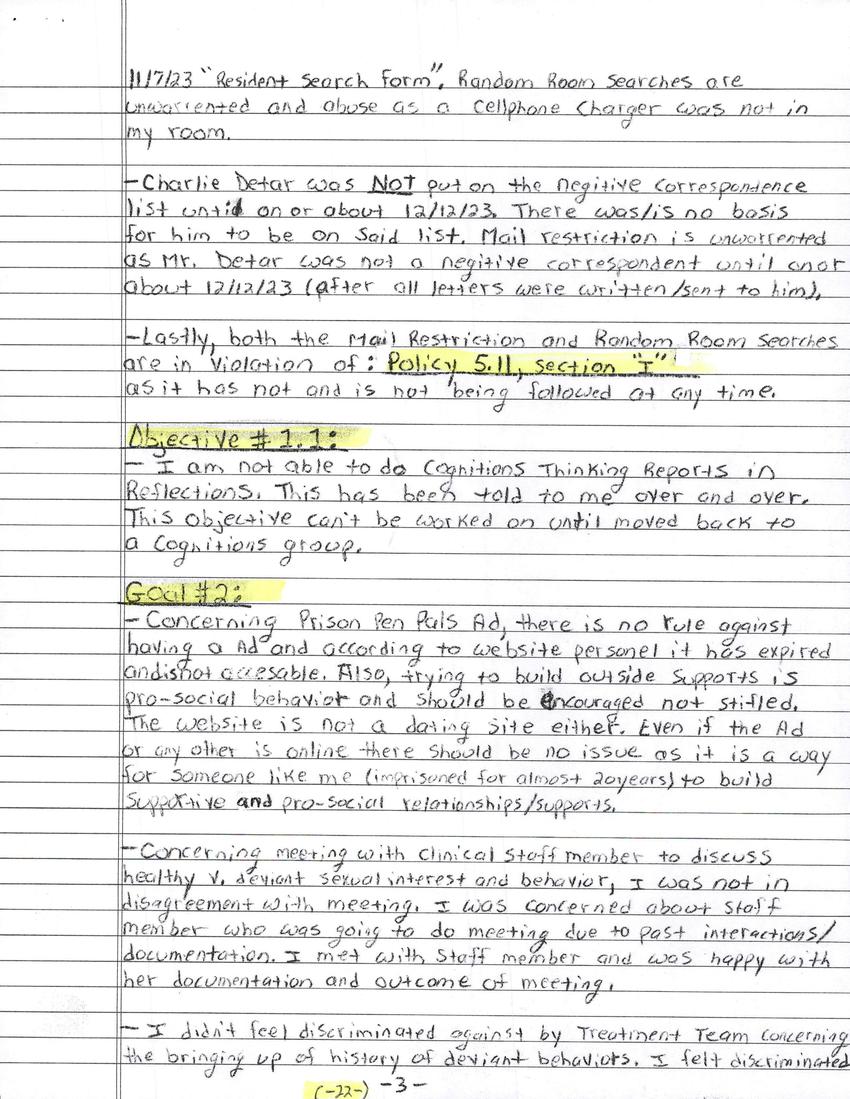 11/7/23 "Resident Search Form". Random Room Searches are
unwarrented and abuse as a Cellphone Charger was not in
my room.
-Charlie Detar was NOT put on the negitive correspondence
list until on or about 12/12/23. There was/is no basis
for him to be on said list. Mail restriction is unwarrented
as Mr. Detar was not a negitive correspondent until on or
about 12/12/23 (after all letters were written/sent to him).
-Lastly, both the Mail Restriction and Random Room Searches
are in violation of: Policy 5.11, section "I"
as it has not and is not being followed at any time.
Objective #1.1:
- I am not able to do Cognitions Thinking Reports in
Reflections. This has been told to me over and over.
This objective can't be worked on until moved back to
a Cognitions group.
Goal #2:
- Concerning Prison Pen Pals Ad, there is no rule against
having a Ad and according to website personel it has expired
and is not accesable. Also, trying to build outside supports is
pro-social behavior and should be encouraged not stifled.
The website is not a dating site either. Even if the Ad
or any other is online there should be no issue as it is a way
for someone like me (imprisoned for almost 20years) to build
supportive and pro-social relationships/supports.
-Concerning meeting with clinical staff member to discuss
healthy v. deviant sexual interest and behavior, I was not in
disagreement with meeting. I was concerned about staff
member who was going to do meeting due to past interactions/
documentation. I met with staff member and was happy with
her documentation and outcome of meeting.
- I didn't feel discriminated against by Treatment Team concerning
the bringing up of history of deviant behaviors. I felt discriminated
(-22-) -3-